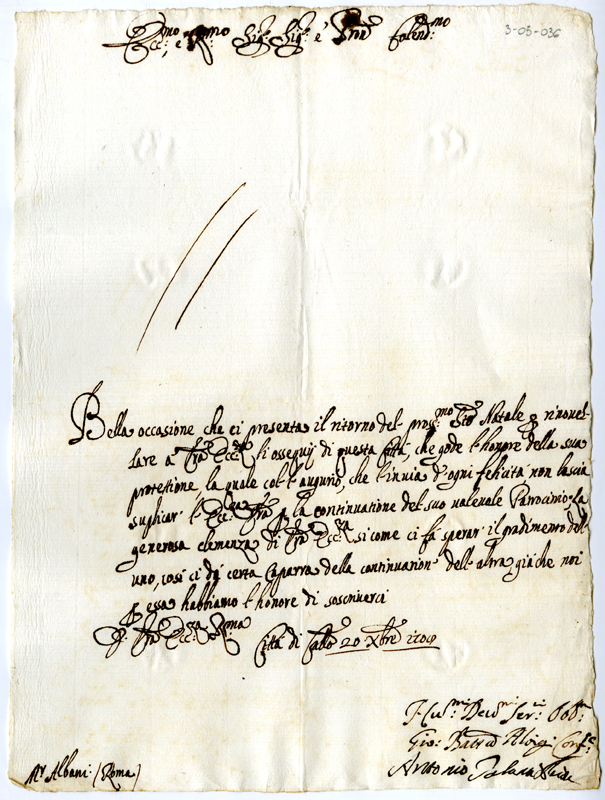 Ecc.mo, e R.mo Sig.r Sig.r e Pron Colend.mo
3-03-036
Bella occasione che ci presenta il ritorno del pross.mo S.to Natale p rinouel-
lare a Vra Ecc.za li ossequij di questa Città, che gode l'honore della sua
protetione, la quale col l'augurio, che l'inuia d'ogni felicità non lascia
supliar l'Ecc.za Vra p la continuatione del suo valeuole Patrocinio; La
generosa clemenza di Vra Ecc.za si come ci fa sperar il gradimento dell'
uno, così ci dà certa caparra della continuation dell'altra, già che noi
p essa habbiamo l'honore di soscriuerci
D. Vra Ecc.za R.ma
Città di Castello 20 Xbre
Deu.mi Ser.ri Obb.mi
Gio: Batta Conf.re
Antonio
Mr Albani (Roma)